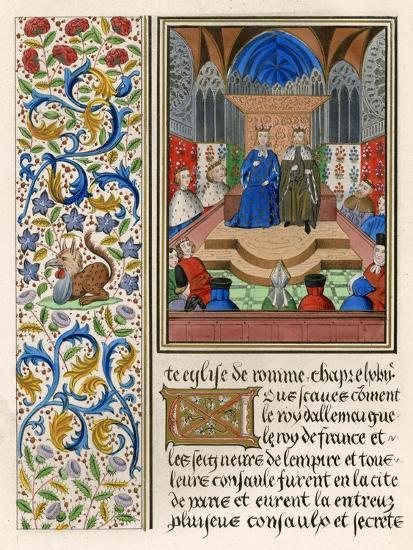 te eglise de romme. chapr e lxbiij
Vous scaues cōment
le roy dallemaigne
le roy de france et
les seigneurs de lempire et tous
leurs consaulx furent en la cite
de paris et eurent la entreux
pluseurs consaulx et secrets